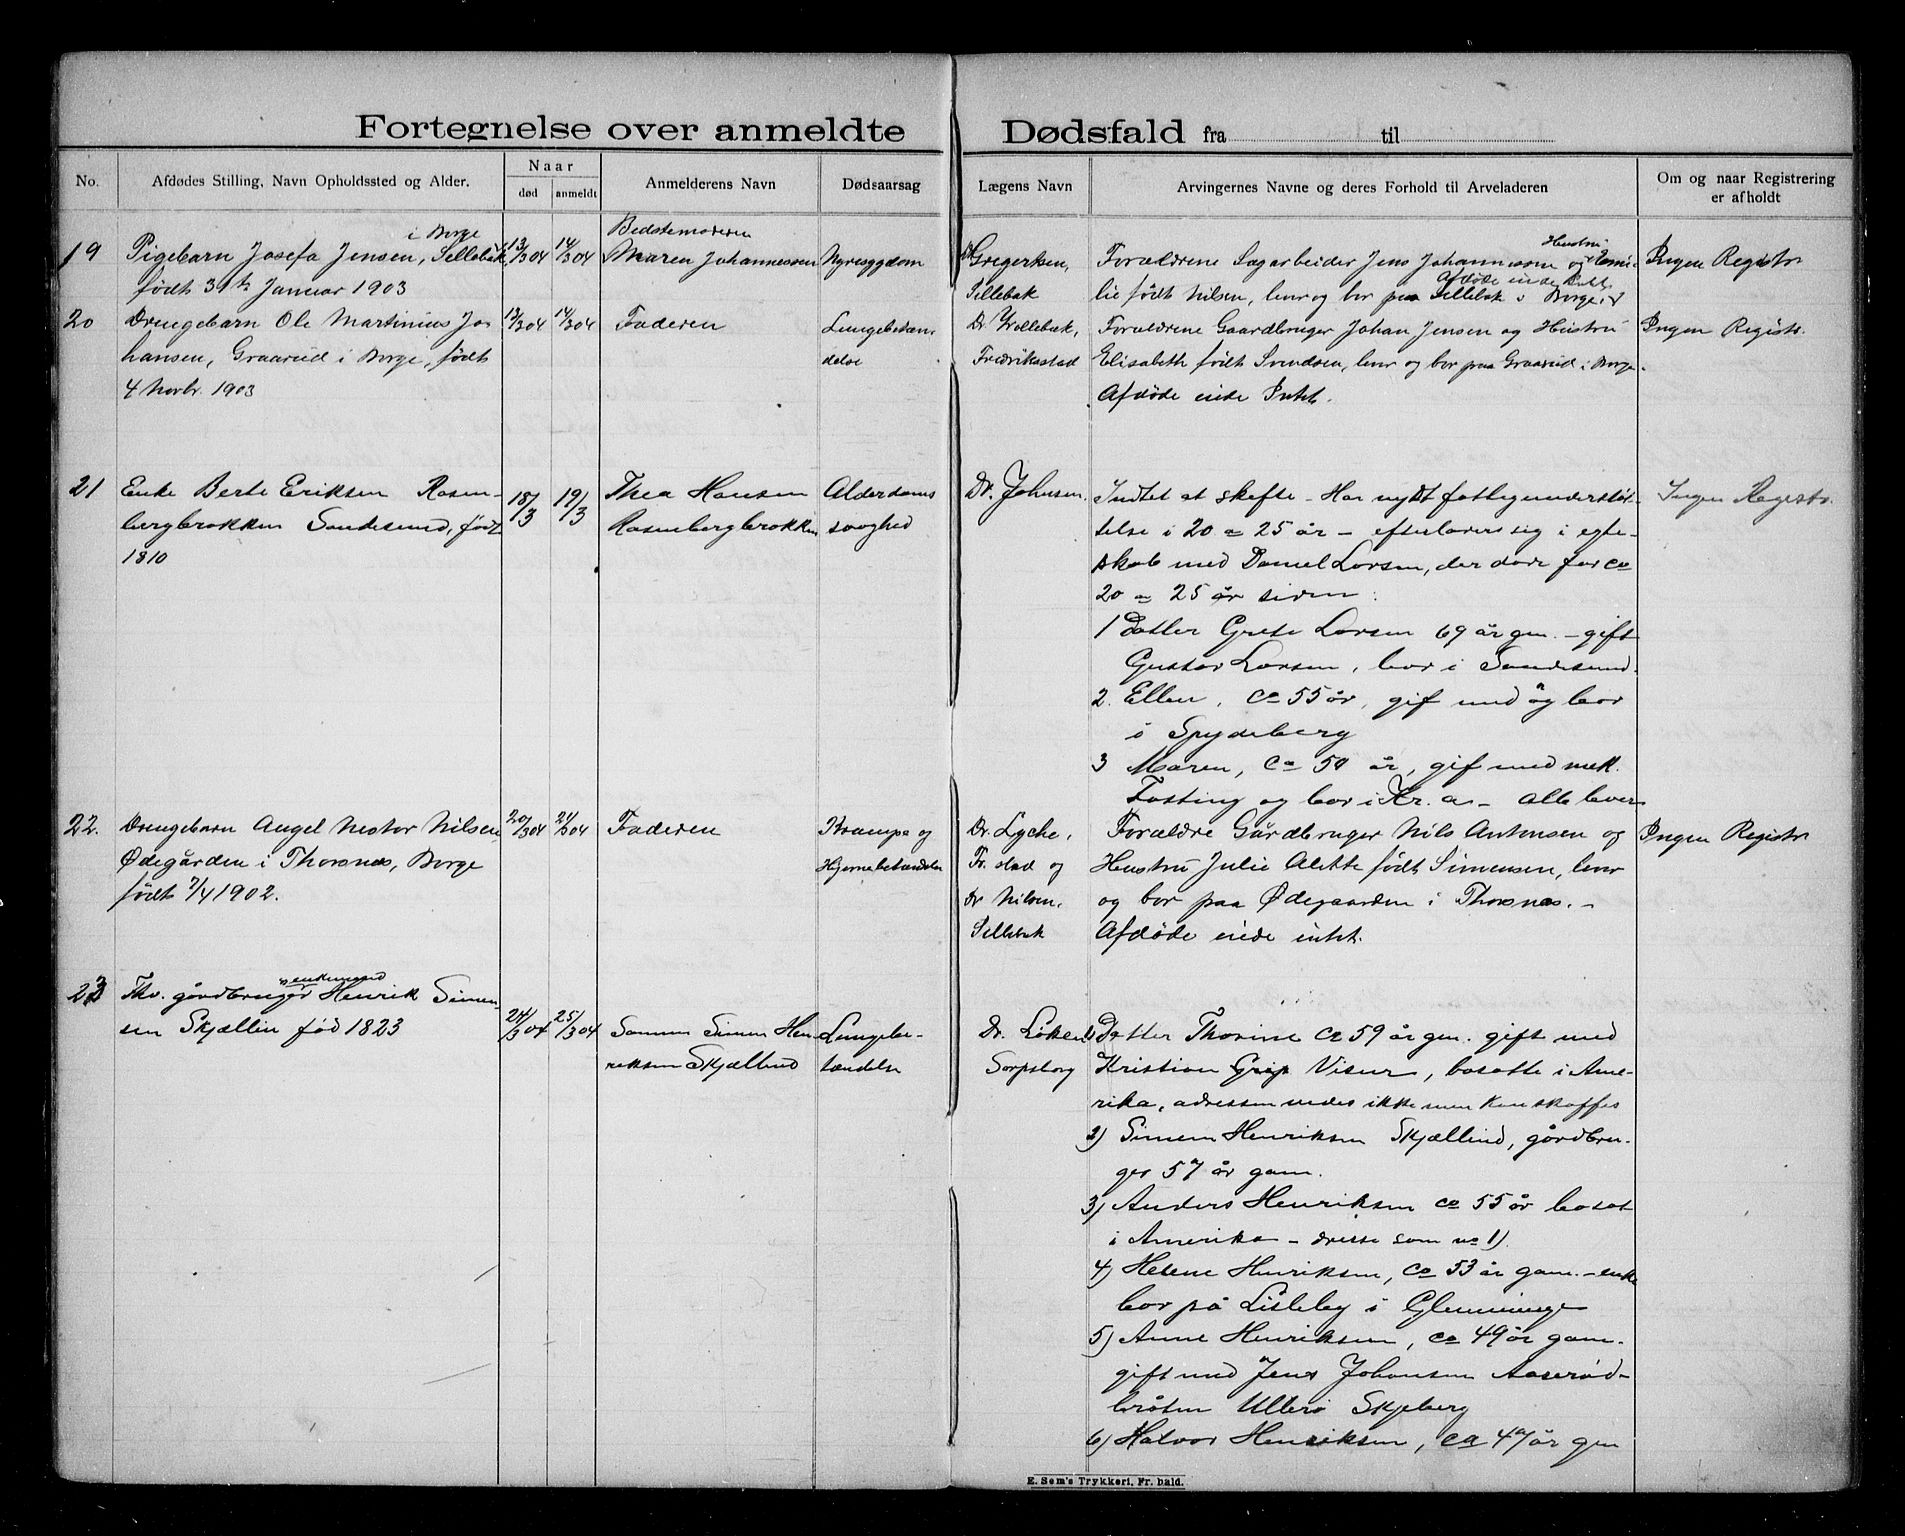 Fortegnelse over anmeldte Dødsfald fra til
No.
Afdødes Stilling, Navn Opholdssted og Alder.
Naar
død
anmeldt
Anmelderens Navn
Dødsaarsag
Lægens Navn
Arvingernes Navne og deres Forhold til Arveladeren
Om og naar Registrering
er afholdt
19
i Borge
Pigebarn Josefa Jensen, Sellebak,
født 31te Januar 1903
13/3 04
14/3 04
Bedstemoderen
Maren Johannessen
Nyresygdom
Dr Gregerksen,
Sellebak
Hustru
Forældrene Sagarbeider Jens Johannesen og Emi-
Afdøde eiede Intet
lie født Nilsen, lever og bor paa Sellebak i Borge.
Ingen Registr
20
Drengebarn Ole Martinius Jo
hansen, Graarud i Borge, født
4 Novbr. 1903
13/3 04
14/3 04
Faderen
Lungebetæn
delse
Dr
Fredriksstad
Forældrene Gaardbruger Johan Jensen og Hustru
Elisabeth født Svendsen, lever og bor paa Graarud i Borge.
Afdøde eiede Intet.
Ingen Registr.
21
Enke Berte Eriksen Rosen-
bergbrokken Sandesund, født
1810
18/3
19/3
Thea Hansen
Rosenbergbrokken
Alderdoms
svaghed
Dr. Johnsen
Indtet at skifte - Har nydt fattigunderstøt-
telse i 20 a 25 år - efterlader sig i egte-
skab med Daniel Larsen, der døde for ca
20 a 25 år siden:
1 Datter Grete Larsen 69 år gm. - gift
Gustav Larsen, bor i Sandesund.
2. Ellen, ca 55 år, gif med og bor
i Spydeberg
3 Maren, ca 50 år, gif med mek.
Fosting og bor i Kr.a - alle lever
Ingen Registr.
22.
Drengebarn Angel Nestor Nilsen
Ødegården i Thorsnæs, Borge
født 7/4 1902.
20/3 04
21/3 04
Faderen
Krampe og
Hjernebetændelse
Dr. Lyche,
Fr. stad og
Dr Nilsen,
Sellebak
Forældre Gårdbruger Nils Antonsen og
Hustru Julie Alette født Simensen, lever
og bor paa Ødegaarden i Thorsnæs. -
Afdøde eiede intet.
Ingen Registr
23
og enkemand
Fhv. gårdbruger Henrik Simen
sen Skjællin fød 1823
24/3 04
25/3 04
Sønnen Simen Hen
riksen Skjællind
Lungebe-
tændelse
Dr. Løken
Sarpsborg
1) Datter Thorine ca 59 år gm. gift med
Kristian Visur, bosatte i Ame-
rika, adressen vides ikke men kan skaffes
2) Simen Henriksen Skjællind, gårdbru-
ger 57 år gam.
3) Anders Henriksen ca 55 år bosat
i Amerika - dresse som no 1).
4) Helene Henriksen, ca 53 år gam. - enke
bor på Lisleby i Glemminge
5) Anne Henriksen, ca 49 år gam.
gift med Jens Johansen Aaserød-
bråten Ullerø Skjeberg
6) Halvor Henriksen, ca 47 år gm
E. Sem's Trykkeri, Fr.hald.